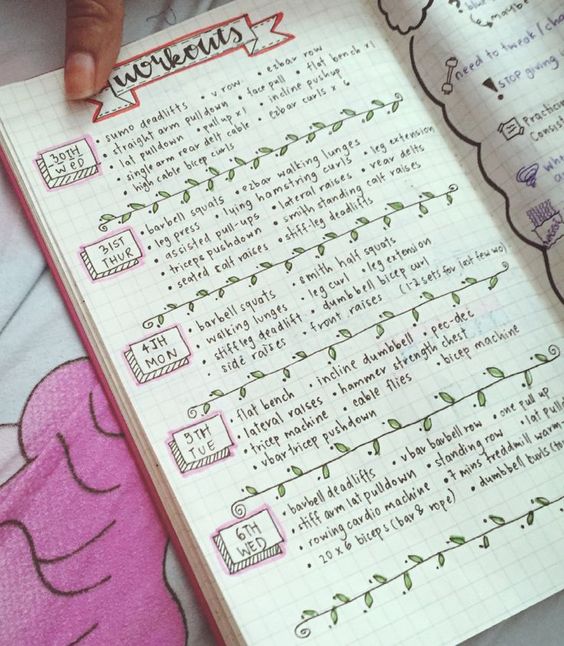 workouts
30TH WED
• sumo deadlifts • v row • ezbar row
• straight arm pulldown • face pull • flat bench x1
• lat pulldown • pull up x1 • incline pushup
• single arm rear delt cable • ezbar curls x 6
• high cable bicep curls
31ST THUR
• barbell squats • ezbar walking lunges • leg extension
• leg press • lying hamstring curls • rear delts
• assisted pull-ups • lateral raises
• triceps pushdown • smith standing calf raises
• seated calf raises • stiff-leg deadlifts
4TH MON
• barbell squats • smith half squats
• walking lunges • leg curl • leg extension
• stiffleg deadlift • dumbbell bicep curl
• side raises • front raises (1-2 sets for last few wo)
5TH TUE
• flat bench • incline dumbbell • pec-dec
• lateral raises • hammer strength chest
• tricep machine • cable flies • bicep machine
• vbar tricep pushdown
6TH WED
• barbell deadlifts • vbar barbell row • one pull up
• stiff arm lat pulldown • standing row • lat
• rowing cardio machine • 7 mins treadmill warm
• 20 x 6 biceps (bar & rope) • dumbbell
need to tweak/
STOP giving
Practicin
Consist